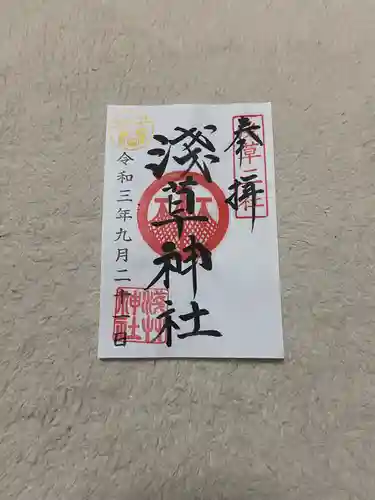 奉拝
淺草神社
令和三年九月二十一日
淺草神社